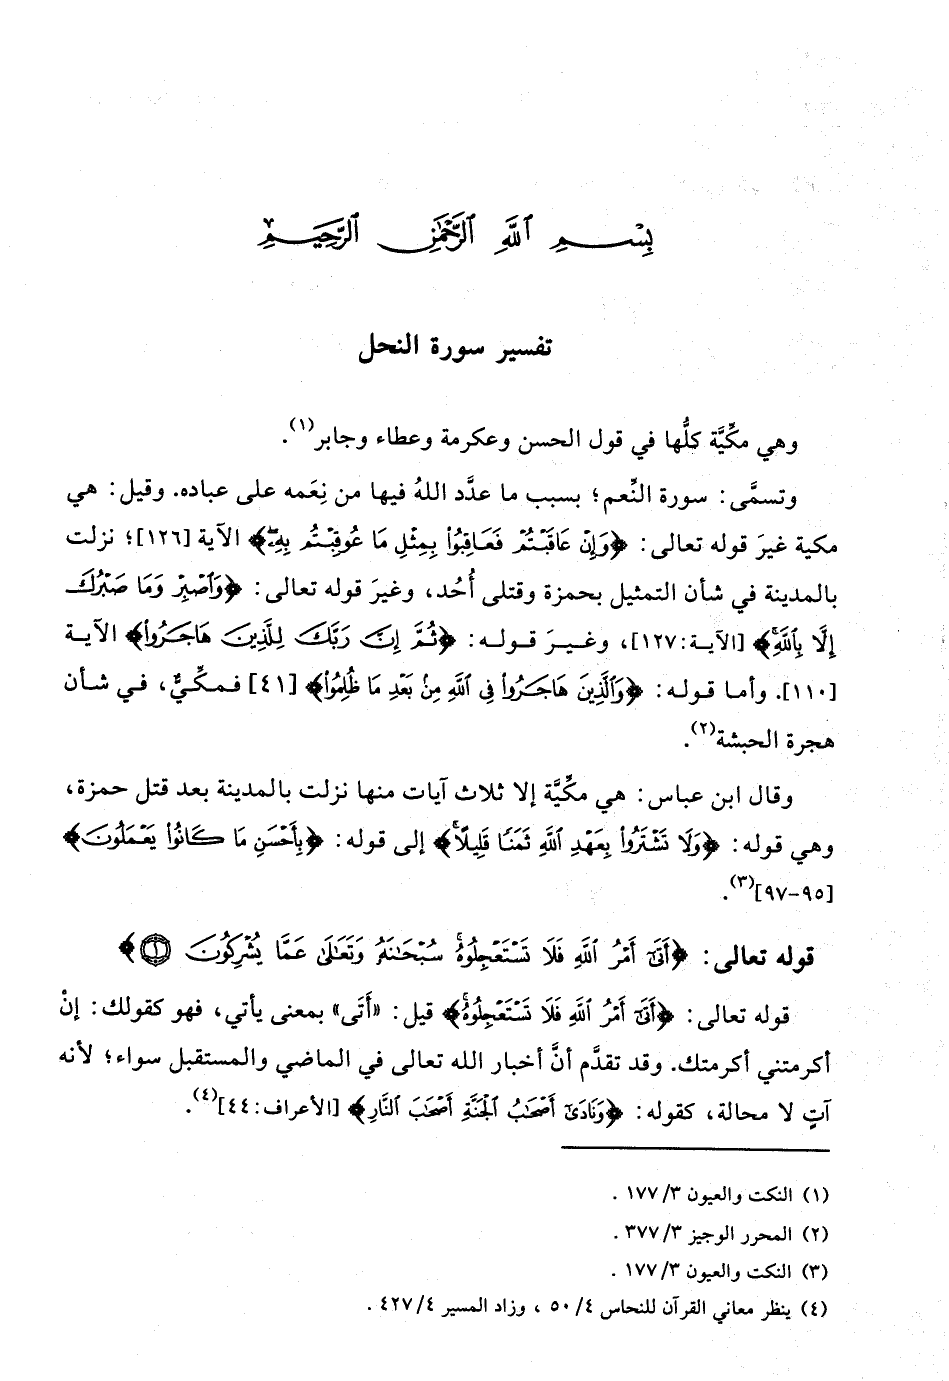 بِسْمِ ٱللَّهِ ٱلرَّحْمَٰنِ ٱلرَّحِيمِ
تفسير سورة النحل
وهي مكِّيَّة كلُّها في قول الحسن وعكرمة وعطاء وجابر(١).
وتسمَّى: سورة النِّعم؛ بسبب ما عدَّد اللهُ فيها من نِعَمه على عباده. وقيل: هي
مكية غيرَ قوله تعالى: ﴿وَإِنْ عَاقَبْتُمْ فَعَاقِبُواْ بِمِثْلِ مَا عُوقِبْتُم بِهِۦ﴾ الآية [١٢٦]؛ نزلت
بالمدينة في شأن التمثيل بحمزة وقتلى أُحُد، وغيرَ قوله تعالى: ﴿وَٱصْبِرْ وَمَا صَبْرُكَ
إِلَّا بِٱللَّهِ﴾ [الآية:١٢٧]، وغيرَ قوله: ﴿ثُمَّ إِنَّ رَبَّكَ لِلَّذِينَ هَاجَرُواْ﴾ الآية
[١١٠]. وأما قوله: ﴿وَٱلَّذِينَ هَاجَرُواْ فِي ٱللَّهِ مِنْ بَعْدِ مَا ظُلِمُواْ﴾ [٤١] فمكِّيٌّ، في شأن
هجرة الحبشة(٢).
وقال ابن عباس: هي مكِّيَّة إلا ثلاث آيات منها نزلت بالمدينة بعد قتل حمزة،
وهي قوله: ﴿وَلَا تَشْتَرُواْ بِعَهْدِ ٱللَّهِ ثَمَنًا قَلِيلًا﴾ إلى قوله: ﴿بِأَحْسَنِ مَا كَانُواْ يَعْمَلُونَ﴾
[٩٥-٩٧](٣).
قوله تعالى: ﴿أَتَىٰٓ أَمْرُ ٱللَّهِ فَلَا تَسْتَعْجِلُوهُ سُبْحَٰنَهُۥ وَتَعَٰلَىٰ عَمَّا يُشْرِكُونَ ۝١﴾
قوله تعالى: ﴿أَتَىٰٓ أَمْرُ ٱللَّهِ فَلَا تَسْتَعْجِلُوهُ﴾ قيل: «أَتَى» بمعنى يأتي، فهو كقولك: إنْ
أكرمتني أكرمتك. وقد تقدَّم أنَّ أخبار الله تعالى في الماضي والمستقبل سواء؛ لأنه
آتٍ لا محالة، كقوله: ﴿وَنَادَىٰٓ أَصْحَٰبُ ٱلْجَنَّةِ أَصْحَٰبَ ٱلنَّارِ﴾ [الأعراف:٤٤](٤).
(١) النكت والعيون ٣/ ١٧٧ .
(٢) المحرر الوجيز ٣/ ٣٧٧ .
(٣) النكت والعيون ٣/ ١٧٧ .
(٤) ينظر معاني القرآن للنحاس ٤/ ٥٠ ، وزاد المسير ٤/ ٤٢٧ .